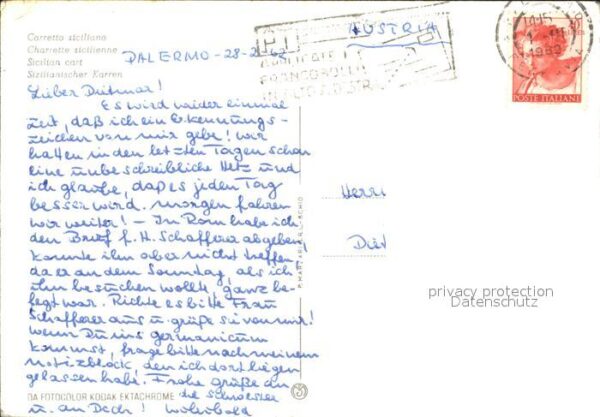 Carretto siciliano
Charrette sicilienne
Sicilian cart
Sizilianischer Karren
PALERMO-28-2-62
AUSTRIA
POSTE ITALIANE
Lieber Dietmar!
Es wird wieder einmal
Zeit, daß ich ein Erkennungs-
zeichen von mir gebe! Wir
hatten in den letzten Tagen schon
eine unbeschreibliche Hetz und
ich glaube, daß es jeden Tag
besser wird. Morgen fahren
wir weiter! - In Rom habe ich
den Brief f. H. Schafferer abgeben,
konnte ihn aber nicht treffen,
da er an dem Sonntag, als ich
ihn besuchen wollte, ganz be-
legt war. Richte es bitte Frau
Schafferer aus u. grüße sie von mir!
Wenn Du ins Germanicum
kommst, frage bitte nach meinem
Notizblock, den ich dort liegen
gelassen habe. Frohe Grüße an
die Schwester
u. an Dich!
Herrn
privacy protection
Datenschutz
DA FOTOCOLOR KODAK EKTACHROME